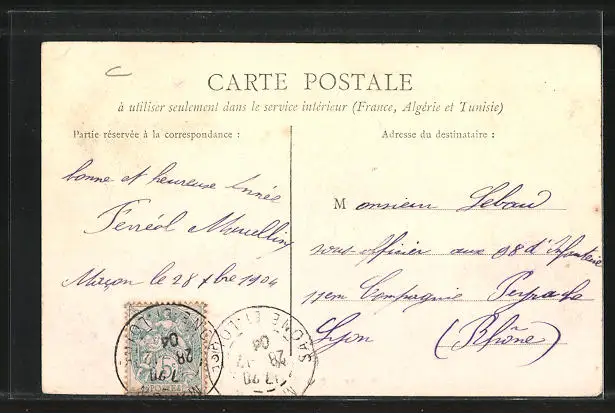 CARTE POSTALE
à utiliser seulement dans le service intérieur (France, Algérie et Tunisie)
Partie réservée à la correspondance :
bonne et heureuse Année
Ferréol
Macon le 28 Xbre 1904
Adresse du destinataire :
Monsieur Lebau
sous officier aux 98 d'Infanterie
11em Compagnie Perrache
Lyon (Rhône)
SAONE ET LOIRE
28
04